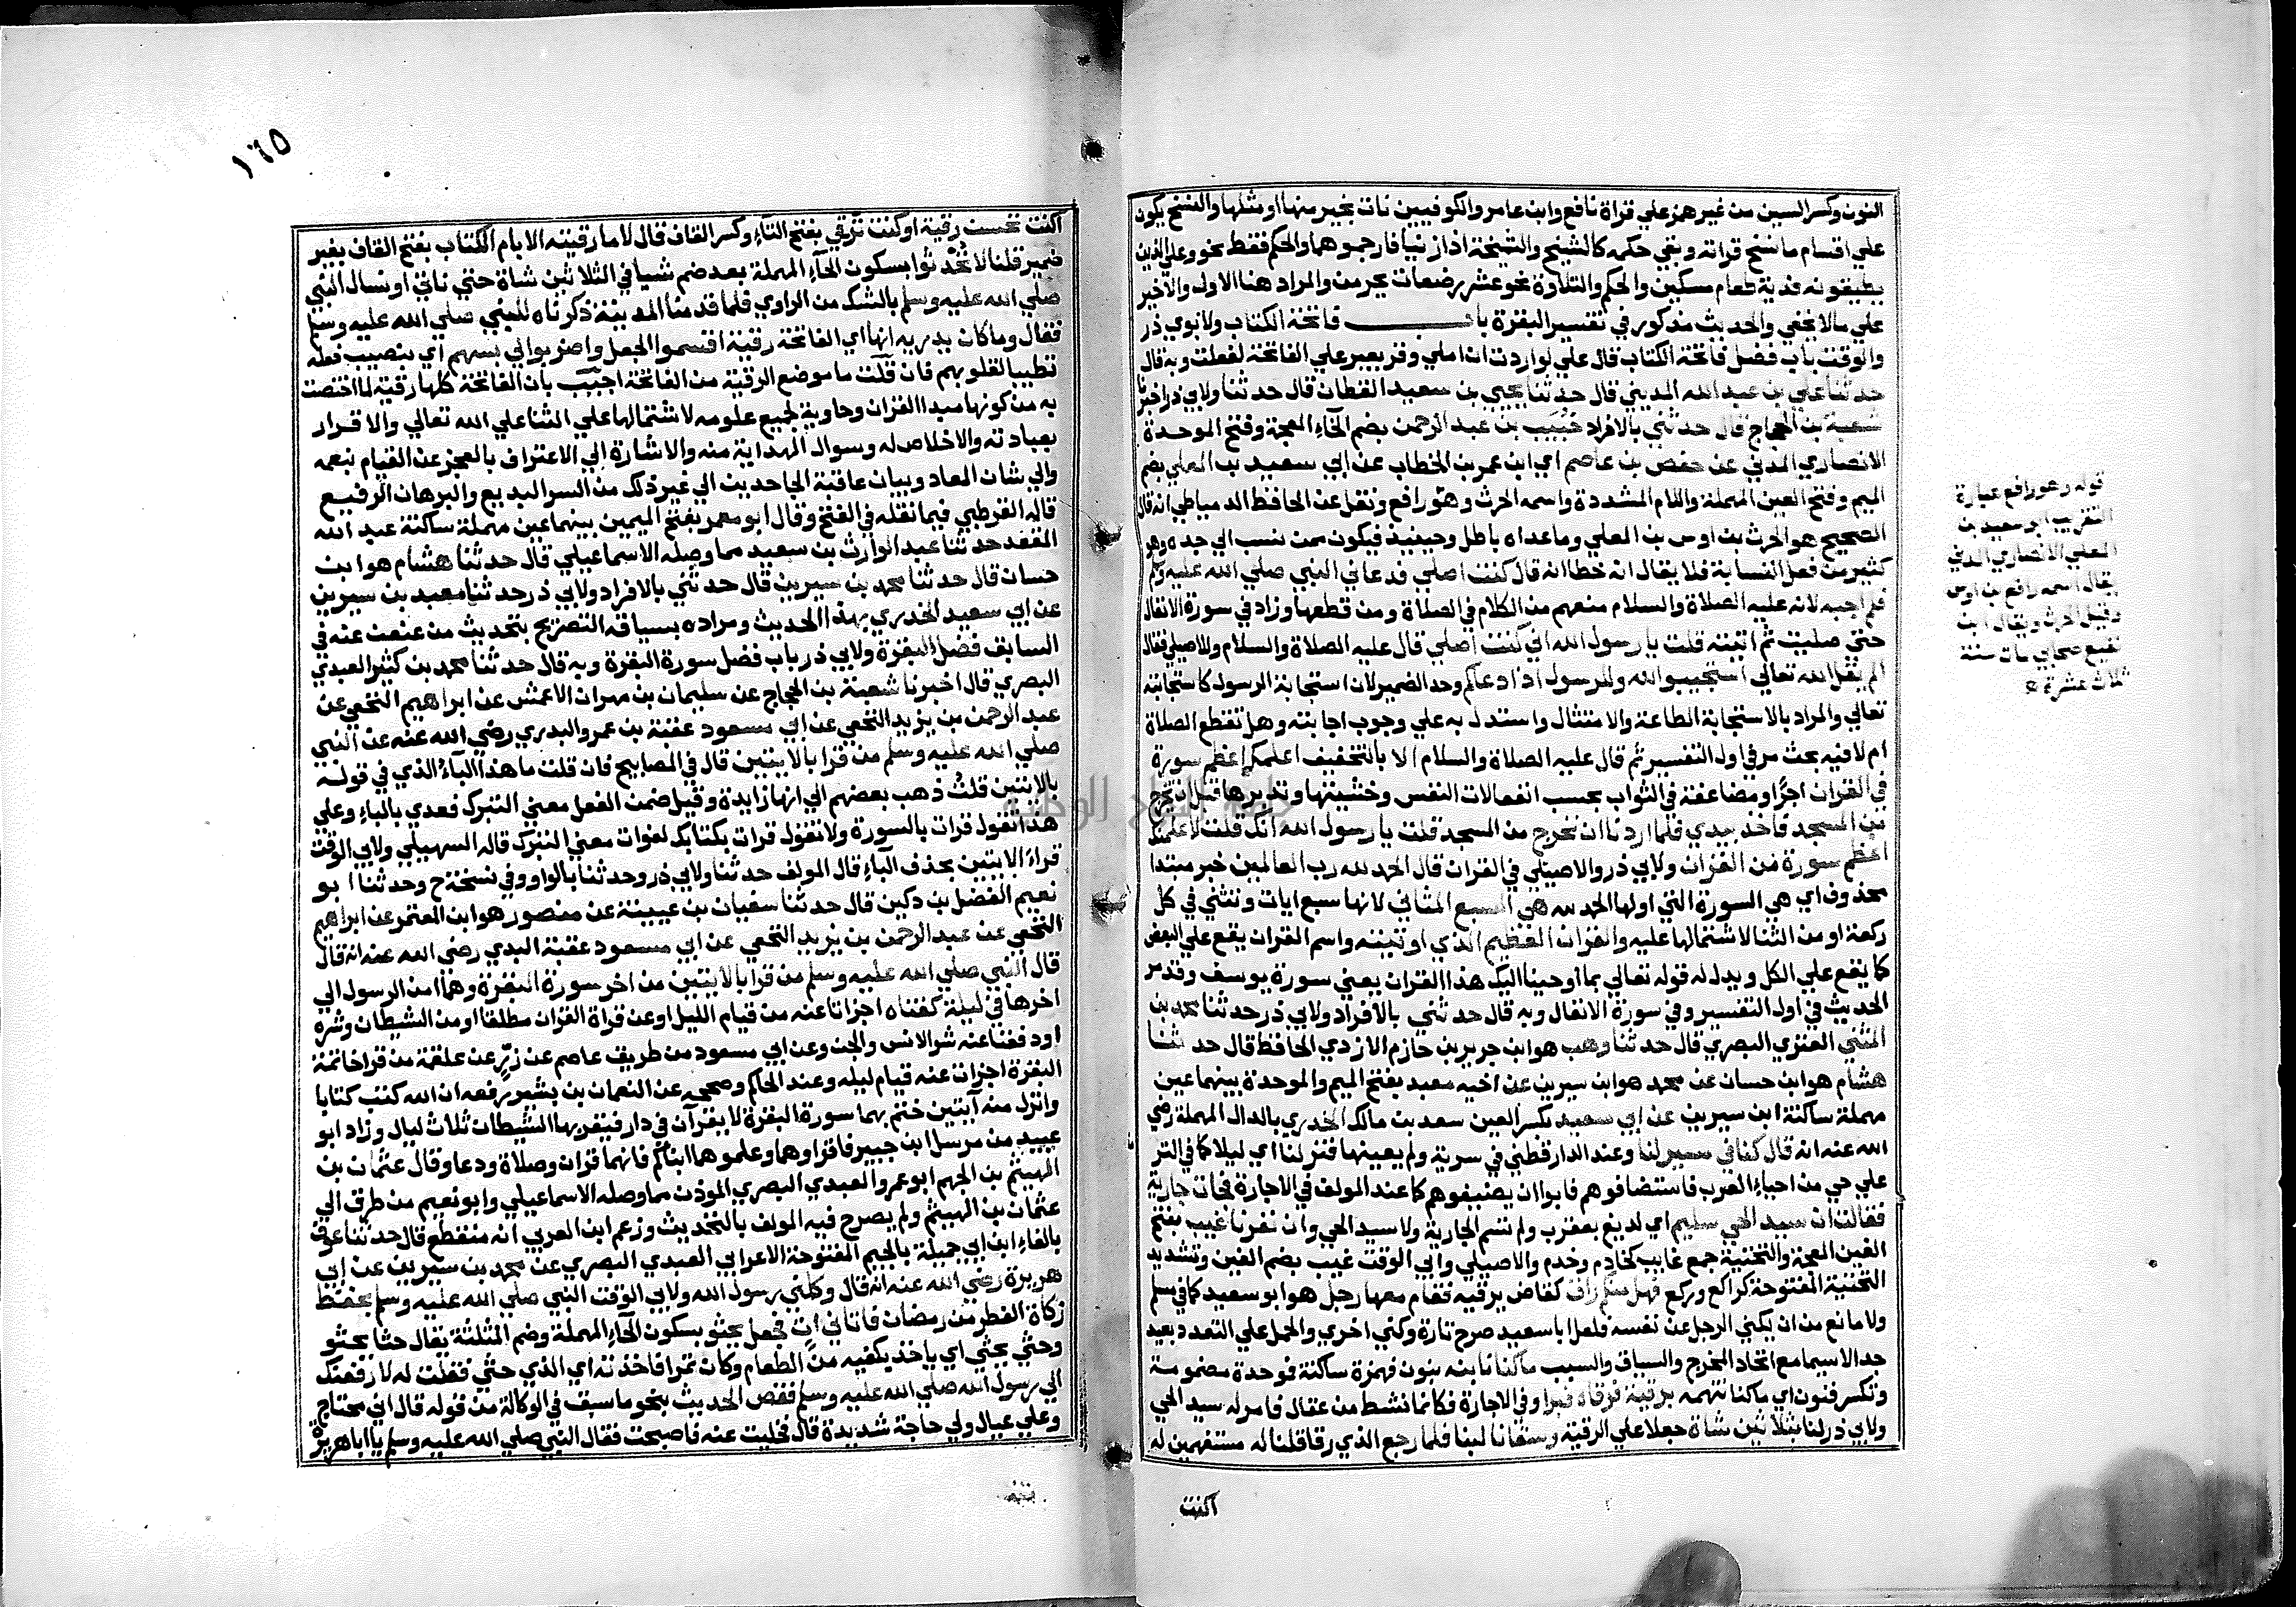 النون وكسر السين من غير همز علي قراة نافع وابن عامر والكوفيين نات بخير منها او مثلها والنسخ يكون
علي اقسام ما نسخ قراته وبقي حكمه كالشيخ والشيخة اذا زنيا فارجموهما والحكم فقط نحو وعلي الذين
يطيقونه فدية طعام مسكين والحكم والتلاوة نحو عشر رضعات يحرمن والمراد هنا الاول والاخير
علي ما لا يخفي والحديث مذكور في تفسير البقرة باب فاتحة الكتاب ولابوي ذر
والوقت باب فضل فاتحة الكتاب قال علي لو اردت ان املي وقر بعير علي الفاتحة لفعلت وبه قال
حدثنا علي بن عبد الله المديني قال حدثنا يحيي بن سعيد القطان قال حدثنا ولابي ذر اخبرنا
شعبة بن الحجاج قال حدثني بالافراد خبيب بن عبد الرحمن بضم الخاء المعجمة وفتح الموحدة
الانصاري المدني عن حفص بن عاصم اي ابن عمر بن الخطاب عن ابي سعيد بن المعلي بضم
الميم وفتح العين المهملة واللام المشددة واسمه الحرث وهو رافع ونقل عن الحافظ الدمياطي انه قال
الصحيح هو الحرث بن اوس بن المعلي وما عداه باطل وحينيذ فيكون ممن نسب الي جده وهو
كثير من فعل النسابة فلا يقال انه خطا انه قال كنت اصلي فدعاني النبي صلي الله عليه وسلم
فلم اجبه لانه عليه الصلاة والسلام منعهم من الكلام في الصلاة ومن قطعها وزاد في سورة الانفال
حتي صليت ثم اتيته قلت يا رسول الله اني كنت اصلي قال عليه الصلاة والسلام وللاصيلي فقال
الم يقل الله تعالي استجيبوا لله وللرسول اذا دعاكم وحد الضمير لان استجابة الرسول كاستجابته
تعالي والمراد بالاستجابة الطاعة والامتثال واستدل به علي وجوب اجابته وهل تقطع الصلاة
ام لا فيه بحث مر في اول التفسير ثم قال عليه الصلاة والسلام الا بالتخفيف اعلمك اعظم سورة
في القران اجرا ومضاعفة في الثواب بحسب انفعالات النفس وخشيتها وتدبرها قبل ان تخرج
من المسجد فاخذ بيدي فلما اردنا ان نخرج من المسجد قلت يا رسول الله انك قلت لاعلمنك
اعظم سورة من القران ولابي ذر والاصيلي في القران قال الحمد لله رب العالمين خبر مبتدا
محذوف اي هي السورة التي اولها الحمد لله هي السبع المثاني لانها سبع ايات وتثني في كل
ركعة او من الثنا لاشتمالها عليه والقران العظيم الذي اوتيته واسم القران يقع علي البعض
كما يقع علي الكل ويدل له قوله تعالي بما اوحينا اليك هذا القران يعني سورة يوسف وقد مر
الحديث في اول التفسير وفي سورة الانفال وبه قال حدثني بالافراد ولابي ذر حدثنا محمد بن
المثني العنزي البصري قال حدثنا وهب هو ابن جرير بن حازم الازدي الحافظ قال حدثنا
هشام هو ابن حسان عن محمد هو ابن سيرين عن اخيه معبد بفتح الميم والموحدة بينهما عين
مهملة ساكنة ابن سيرين عن ابي سعيد بكسر العين سعد بن مالك الخدري بالدال المهملة رضي
الله عنه انه قال كنا في مسير لنا وعند الدارقطني في سرية ولم يعينها فنزلنا اي ليلا كما في التر
علي حي من احياء العرب فاستضافوهم فابوا ان يضيفوهم كما عند المولف في الاجارة فجات جارية
فقالت ان سيد الحي سليم اي لديغ بعقرب ولم تسم الجارية ولا سيد الحي وان نفرنا غيب بفتح
الغين المعجمة والتحتية جمع غايب كخادم وخدم وللاصيلي وابي الوقت غيب بضم الغين وتشديد
التحتية المفتوحة كراكع وركع فهل منكم راق كقاض يرقيه فقام معها رجل هو ابو سعيد كما في مسلم
ولا مانع من ان يكني الرجل عن نفسه فلعل ابا سعيد صرح تارة وكني اخري والحمل علي التعدد بعيد
جدا لا سيما مع اتحاد المخرج والسياق والسبب ما كنا نابنه بنون فهمزة ساكنة فوحدة مضمومة
وتكسر فنون اي ما كنا نتهمه برقية فرقاه فبرا وفي الاجارة فكانما نشط من عقال فامر له سيد الحي
ولابي ذر لنا بثلاثين شاة جعلا علي الرقية وسقانا لبنا فلما رجع الذي رقا قلنا له مستفهمين له
اكنت
قوله وهو رافع عبارة
التقريب ابو سعيد بن
المعلي الانصاري المدني
يقال اسمه رافع بن اوس
وقيل الحرث ويقال ابن
نفيع صحابي مات سنة
ثلاث عشرة
١٦٥
اكنت تحسن رقية او كنت ترقي بفتح التاء وكسر القاف قال لا ما رقيته الا بام الكتاب بفتح القاف بغير
ضمير قلنا لا تحدثوا بسكون الحاء المهملة بعد ضم شيا في الثلاثين شاة حتي ناتي او نسال النبي
صلي الله عليه وسلم بالشك من الراوي فلما قدمنا المدينة ذكرناه للنبي صلي الله عليه وسلم
فقال وما كان يدريه انها اي الفاتحة رقية اقسموا الجعل واضربوا لي بسهم اي بنصيب فعله
تطييبا لقلوبهم فان قلت ما موضع الرقية من الفاتحة اجيب بان الفاتحة كلها رقية لما اختصت
به من كونها مبدا القران وحاوية لجميع علومه لاشتمالها علي الثنا علي الله تعالي والاقرار
بعبادته والاخلاص له وسوال الهداية منه والاشارة الي الاعتراف بالعجز عن القيام بنعمه
والي شان المعاد وبيان عاقبة الجاحدين الي غير ذلك من السر البديع والبرهان الرفيع
قاله القرطبي فيما نقله في الفتح وقال ابو معمر بفتح الميمين بينهما عين مهملة ساكنة عبد الله
المقعد حدثنا عبد الوارث بن سعيد مما وصله الاسماعيلي قال حدثنا هشام هو ابن
حسان قال حدثنا محمد بن سيرين قال حدثني بالافراد ولابي ذر حدثنا معبد بن سيرين
عن ابي سعيد الخدري بهذا الحديث ومراده بسياقه التصريح بتحديث من عنعن عنه في
السابق فضل البقرة ولابي ذر باب فضل سورة البقرة وبه قال حدثنا محمد بن كثير العبدي
البصري قال اخبرنا شعبة بن الحجاج عن سليمان بن مهران الاعمش عن ابراهيم النخعي عن
عبد الرحمن بن يزيد النخعي عن ابي مسعود عقبة بن عمرو البدري رضي الله عنه عن النبي
صلي الله عليه وسلم من قرا بالايتين قال في المصابيح فان قلت ما هذا الباء الذي في قوله
بالايتين قلت ذهب بعضهم الي انها زايدة وقيل ضمن الفعل معني التبرك فعدي بالباء وعلي
هذا تقول قرات بالسورة ولا تقول قرات بكتابك لفوات معني التبرك قاله السهيلي ولابي الوقت
قراء الايتين بحذف الباء قال المولف حدثنا ولابي ذر وحدثنا بالواو وفي نسخة ح وحدثنا ابو
نعيم الفضل بن دكين قال حدثنا سفيان بن عيينة عن منصور هو ابن المعتمر عن ابراهيم
النخعي عن عبد الرحمن بن يزيد النخعي عن ابي مسعود عقبة البدي رضي الله عنه انه قال
قال النبي صلي الله عليه وسلم من قرا بالايتين من اخر سورة البقرة وهما امن الرسول الي
اخرها في ليلة كفتاه اجزاتا عنه من قيام الليل او عن قراة القران مطلقا او من الشيطان وشره
او دفعتا عنه شر الانس والجن وعن ابي مسعود من طريق عاصم عن زر عن علقمة من قرا خاتمة
البقرة اجزات عنه قيام ليله وعند الحاكم وصححه عن النعمان بن بشير رفعه ان الله كتب كتابا
وانزل منه آيتين ختم بهما سورة البقرة لا يقرآن في دار فيقربها الشيطان ثلاث ليال وزاد ابو
عبيد من مرسل ابن جبير فاقراوهما وعلموهما ابناكم فانهما قران وصلاة ودعا وقال عثمان بن
الهيثم بن الجهم ابو عمرو العبدي البصري الموذن مما وصله الاسماعيلي وابو نعيم من طرق الي
عثمان بن الهيثم ولم يصرح فيه المولف بالتحديث وزعم ابن العربي انه منقطع قال حدثنا عوف
بالفاء ابن ابي جميلة بالجيم المفتوحة الاعرابي العبدي البصري عن محمد بن سيرين عن ابي
هريرة رضي الله عنه انه قال وكلني رسول الله ولابي الوقت النبي صلي الله عليه وسلم بحفظ
زكاة الفطر من رمضان فاتاني ات فجعل يحثو بسكون الحاء المهملة وضم المثلثة يقال حثا يحثو
وحثي يحثي اي ياخذ بكفيه من الطعام وكان تمرا فاخذته اي الذي حثي فقلت له لارفعنك
الي رسول الله صلي الله عليه وسلم فقص الحديث بنحو ما سبق في الوكالة من قوله قال اني محتاج
وعلي عيال ولي حاجة شديدة قال فخليت عنه فاصبحت فقال النبي صلي الله عليه وسلم يا ابا هريرة